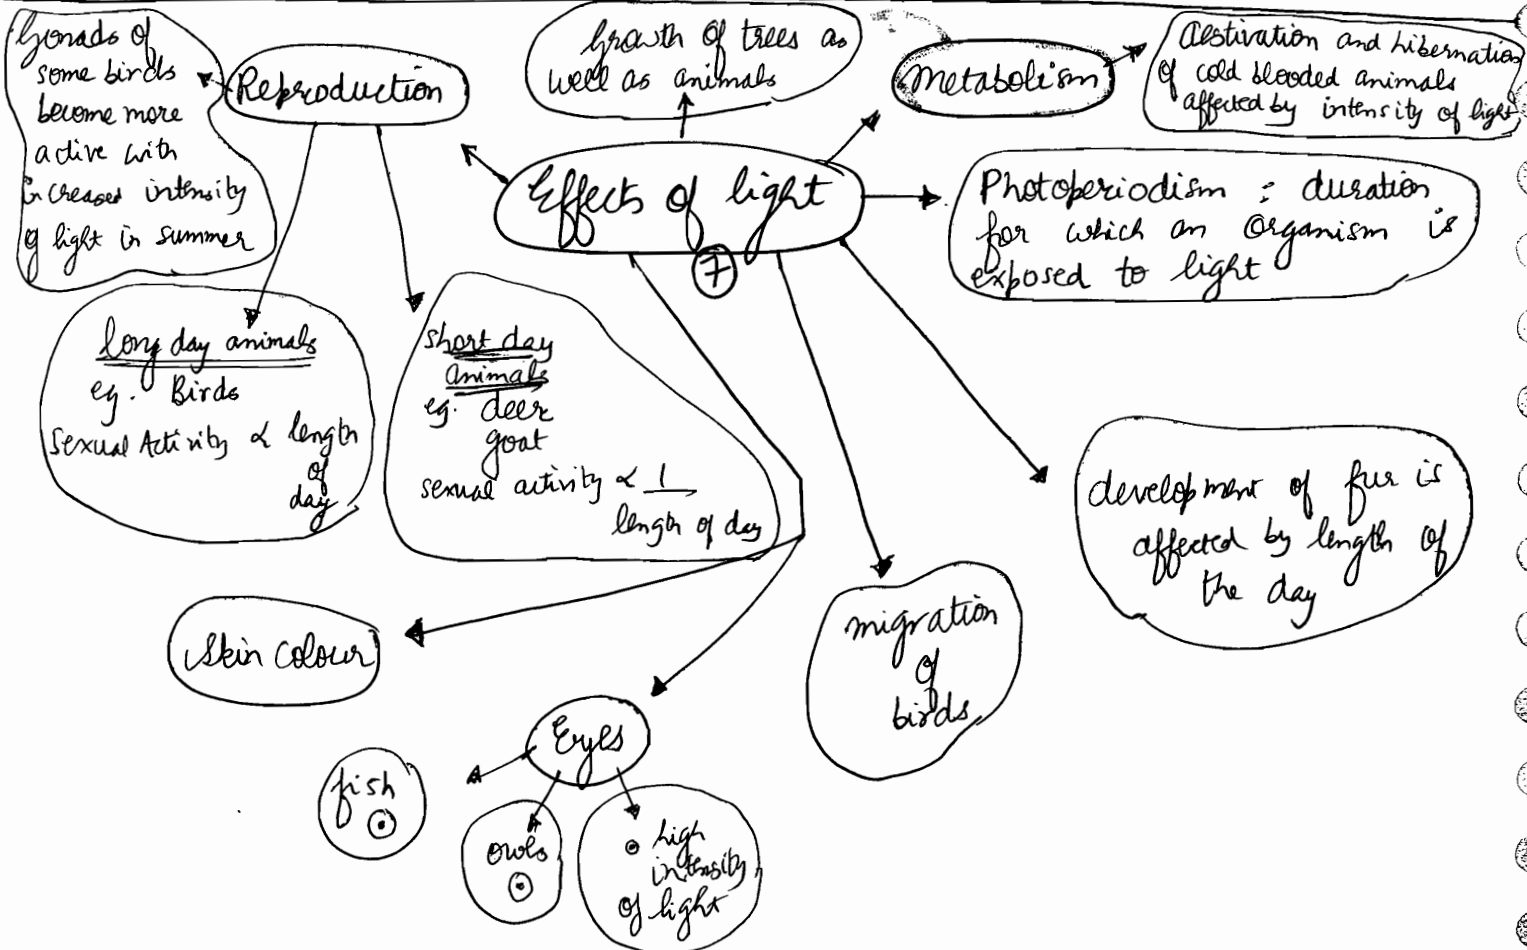 Gonads of
some birds
become more
active with
increased intensity
of light in summer
Reproduction
Growth of trees as
well as animals
Metabolism
Aestivation and hibernation
of cold blooded animals
affected by intensity of light
Effects of light
7
Photoperiodism : duration
for which an organism is
exposed to light
long day animals
eg. Birds
sexual Activity ∝ length
of
day
short day
animals
eg. deer
goat
sexual activity ∝ 1
length of day
development of fur is
affected by length of
the day
migration
of
birds
Skin colour
Eyes
fish
owls
high
intensity
of light